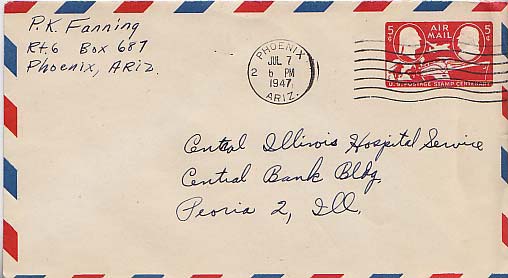 P.K. Fanning
Rt.6 Box 687
Phoenix, ARIZ.
PHOENIX
2
JUL 7
6 PM
1947
ARIZ.
5¢ AIR MAIL 5¢
U.S. POSTAGE STAMP CENTENARY
Central Illinois Hospital Service
Central Bank Bldg.
Peoria 2, Ill.